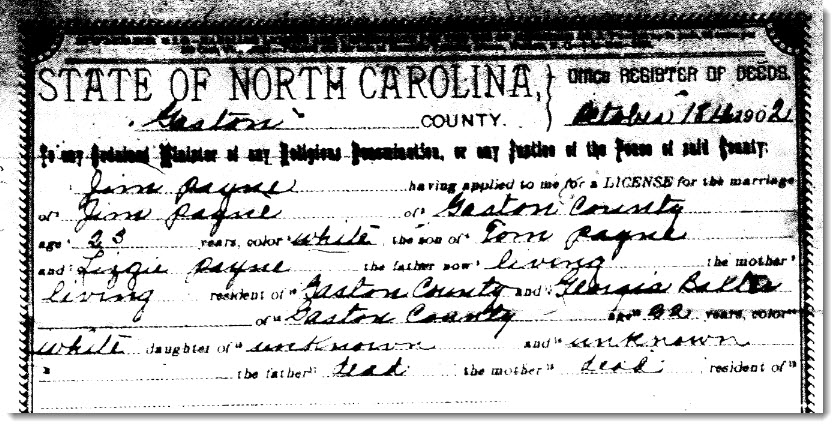 STATE OF NORTH CAROLINA, } Office REGISTER OF DEEDS.
Gaston COUNTY. October 18th 1902
To any Ordained Minister of any Religious Denomination, or any Justice of the Peace of said County:
Jim Payne having applied to me for a LICENSE for the marriage
of Jim Payne of Gaston County
age 23 years, color white the son of Tom Payne
and Lizzie Payne the father now living the mother
living resident of Gaston County and Georgia
of Gaston County age 22 years, color
white daughter of unknown and unknown
the father dead the mother dead resident of